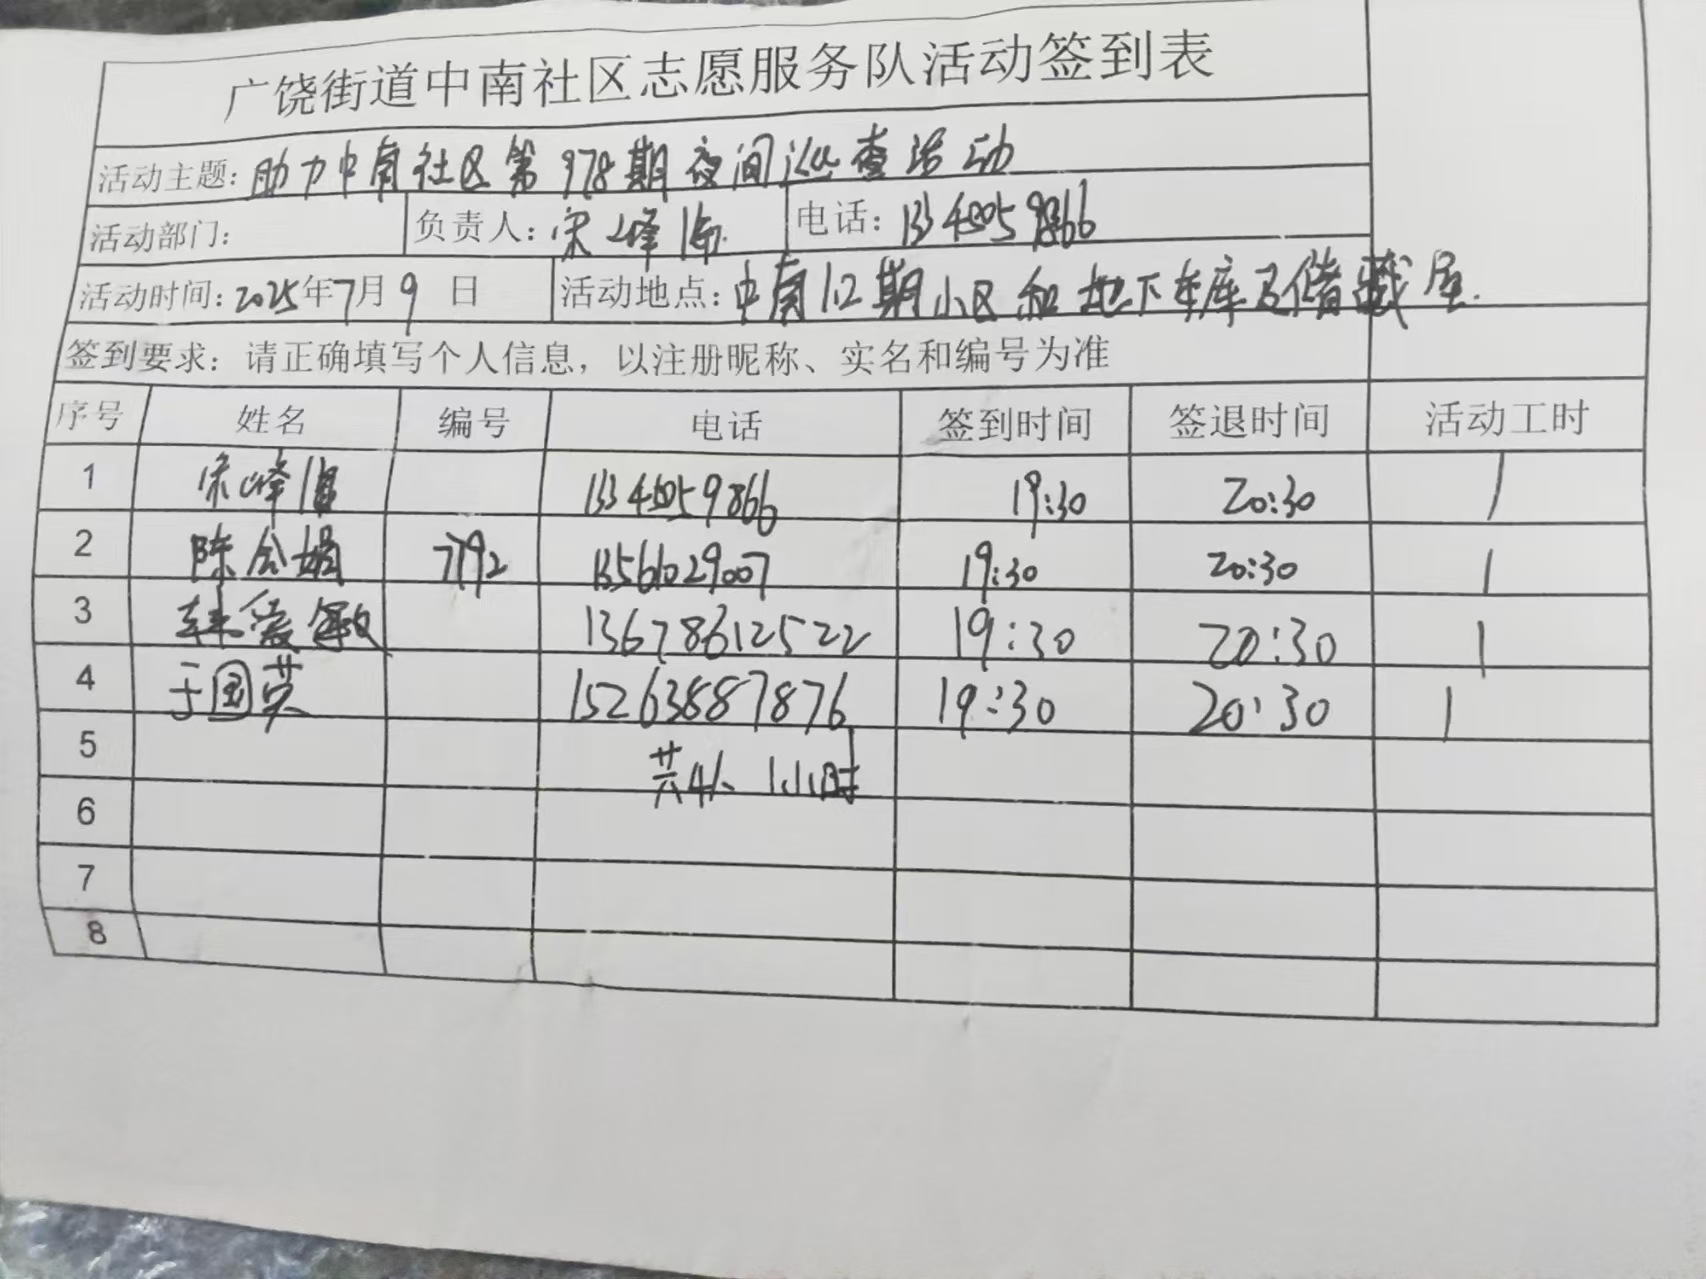 广饶街道中南社区志愿服务队活动签到表
活动主题: 助力中南社区第978期夜间巡查活动
活动部门: 负责人: 宋峰 电话:
活动时间: 2025年7月9日 活动地点: 中南1.2期小区和地下车库及储藏屋.
签到要求: 请正确填写个人信息, 以注册昵称、实名和编号为准
序号 姓名 编号 电话 签到时间 签退时间 活动工时
1 宋峰 19:30 20:30 1
2 陈会娟 7192 13561029007 19:30 20:30 1
3 韩爱敏 13678612522 19:30 20:30 1
4 于国英 15263887876 19:30 20:30 1
5 共4人 1小时
6
7
8